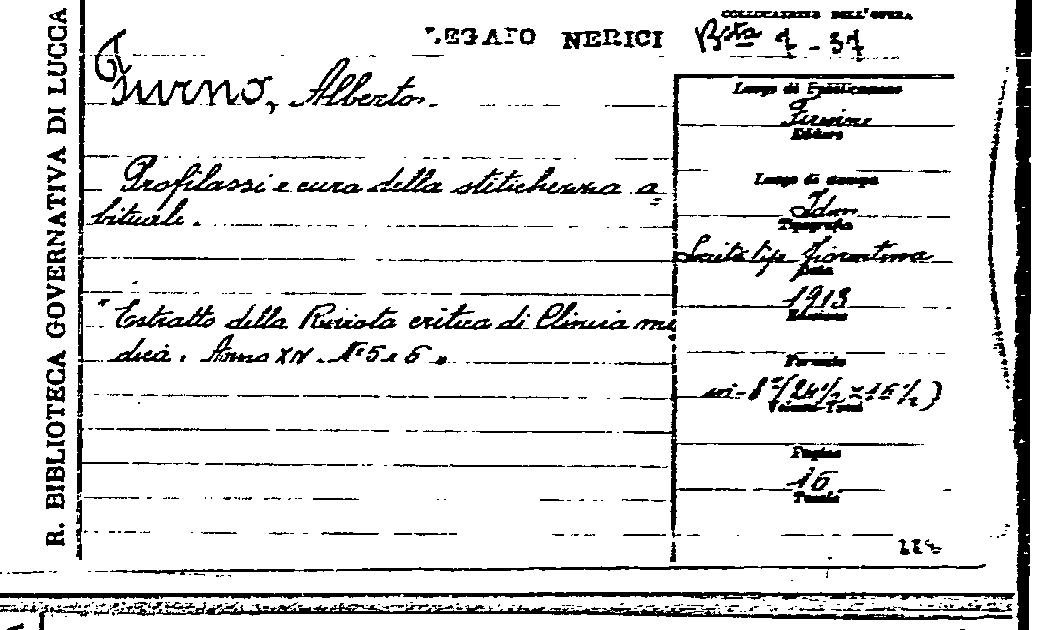 R. BIBLIOTECA GOVERNATIVA DI LUCCA
COLLOCAZIONE DELL'OPERA
LEGATO NERICI
Furno, Alberto.
Profilassi e cura della stitichezza a
bituale.
"Estratto della Rivista critica di Clinica me
dica. Anno XIV. N° 5 e 6"
Luogo di Pubblicazione
Firenze
Editore
Luogo di stampa
Idem
Tipografia
Società tip. fiorentina
Data
1913
Edizione
Formato
in-8° (24½ x 16½)
Volume-Tomi
Pagine
16
Tavole